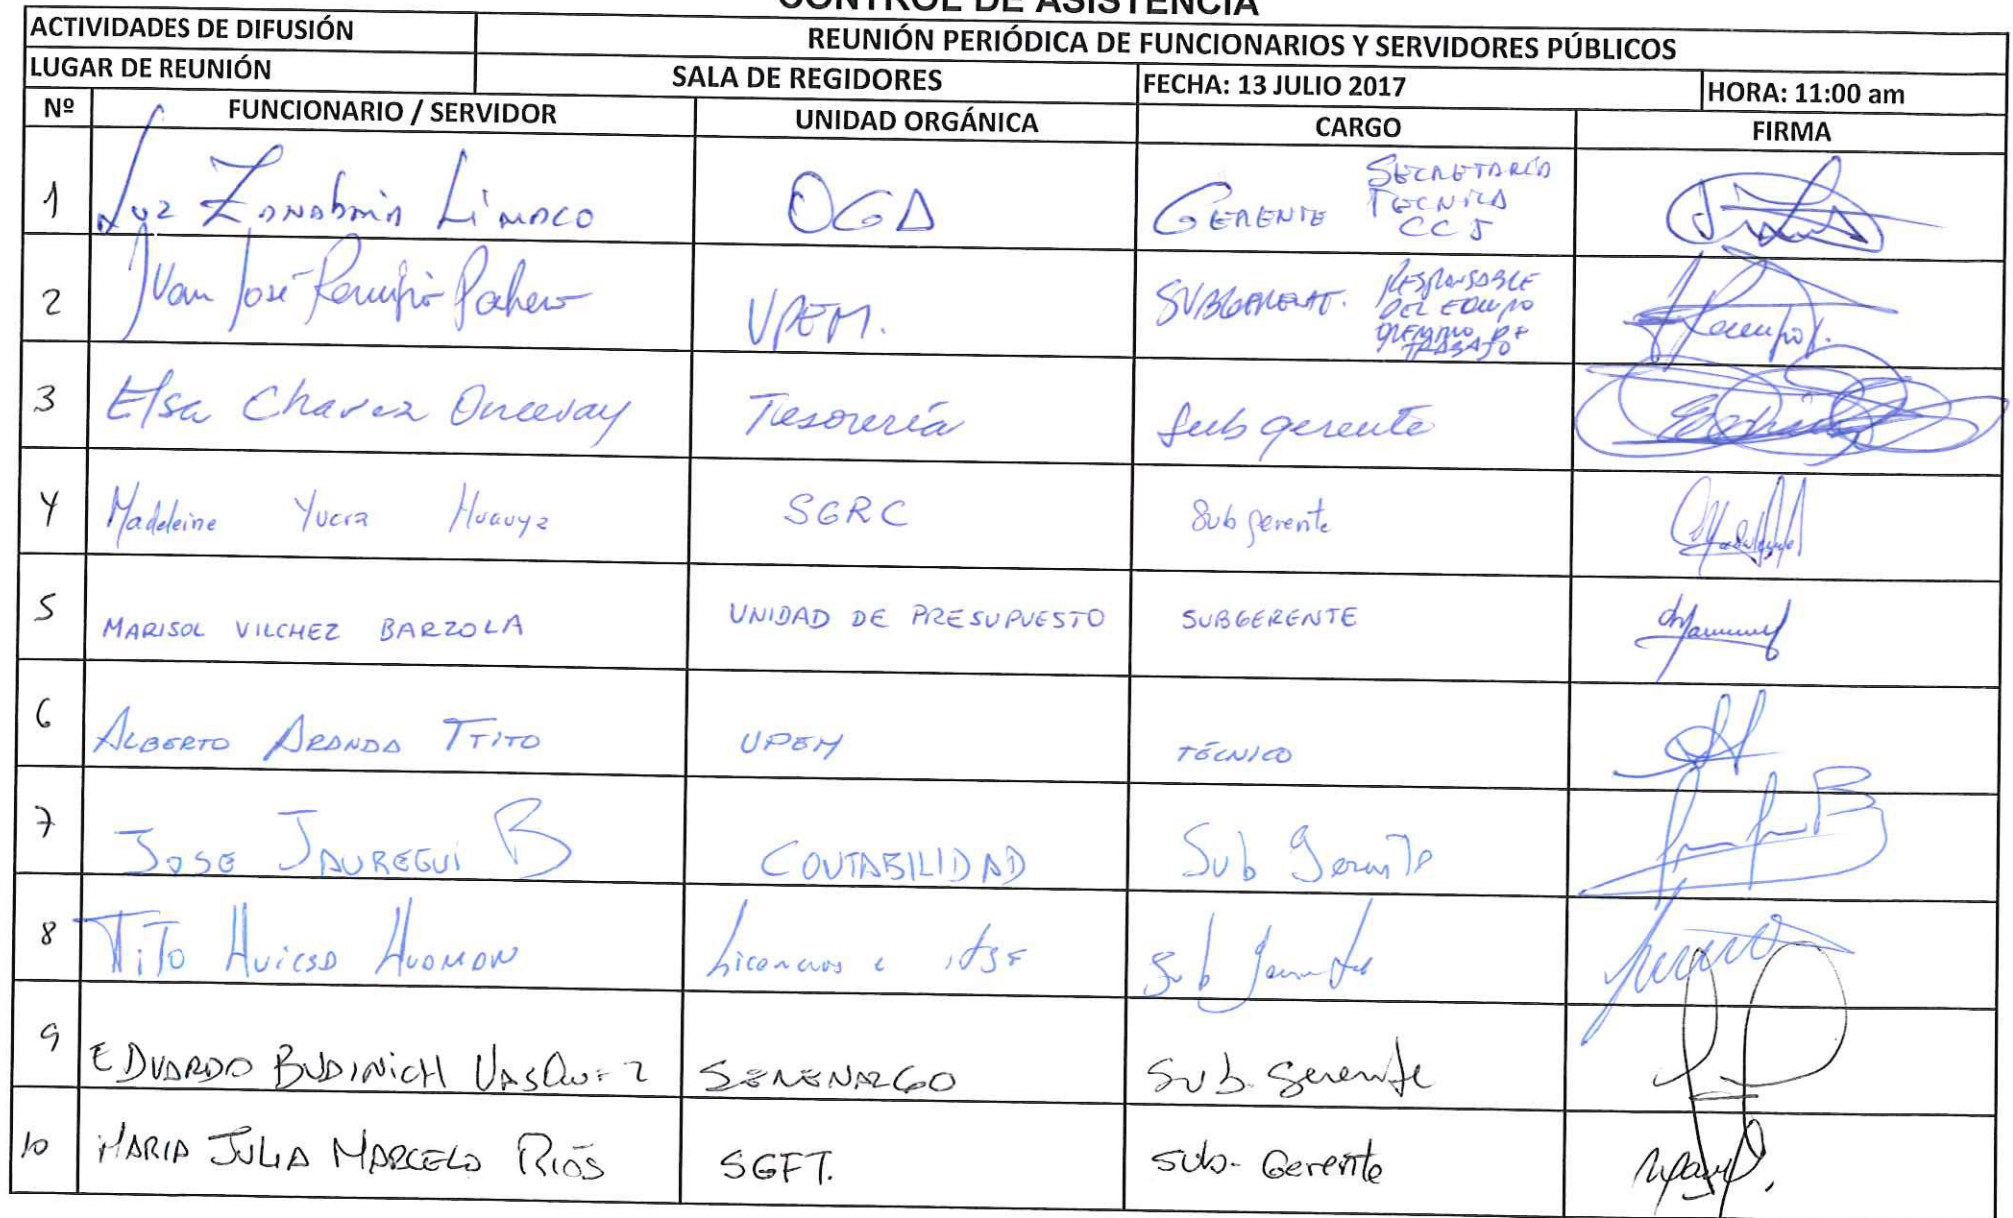 CONTROL DE ASISTENCIA
ACTIVIDADES DE DIFUSIÓN REUNIÓN PERIÓDICA DE FUNCIONARIOS Y SERVIDORES PÚBLICOS
LUGAR DE REUNIÓN SALA DE REGIDORES FECHA: 13 JULIO 2017 HORA: 11:00 am
Nº FUNCIONARIO / SERVIDOR UNIDAD ORGÁNICA CARGO FIRMA
1 Luz Zanabria Limaco OGA GERENTE SECRETARÍA TECNICA CCI
2 Juan José Pacheco UPEM. SUBGERENTE. RESPONSABLE DEL EQUIPO DE TRABAJO
3 Elsa Chavez Oncevay Tesorería Sub gerente
4 Madeleine Yucra Huauya SGRC Sub gerente
5 MARISOL VILCHEZ BARZOLA UNIDAD DE PRESUPUESTO SUBGERENTE
6 ALBERTO ARANDA TTITO UPEM TÉCNICO
7 JOSE JAUREGUI B CONTABILIDAD Sub Gerente
8 TiTO HUAMAN Licencias e Sub Gerente
9 EDUARDO BUDINICH VASQUEZ SERENAZGO Sub. Gerente
10 MARIA JULIA MARCELO RIOS SGFT. Sub- Gerente